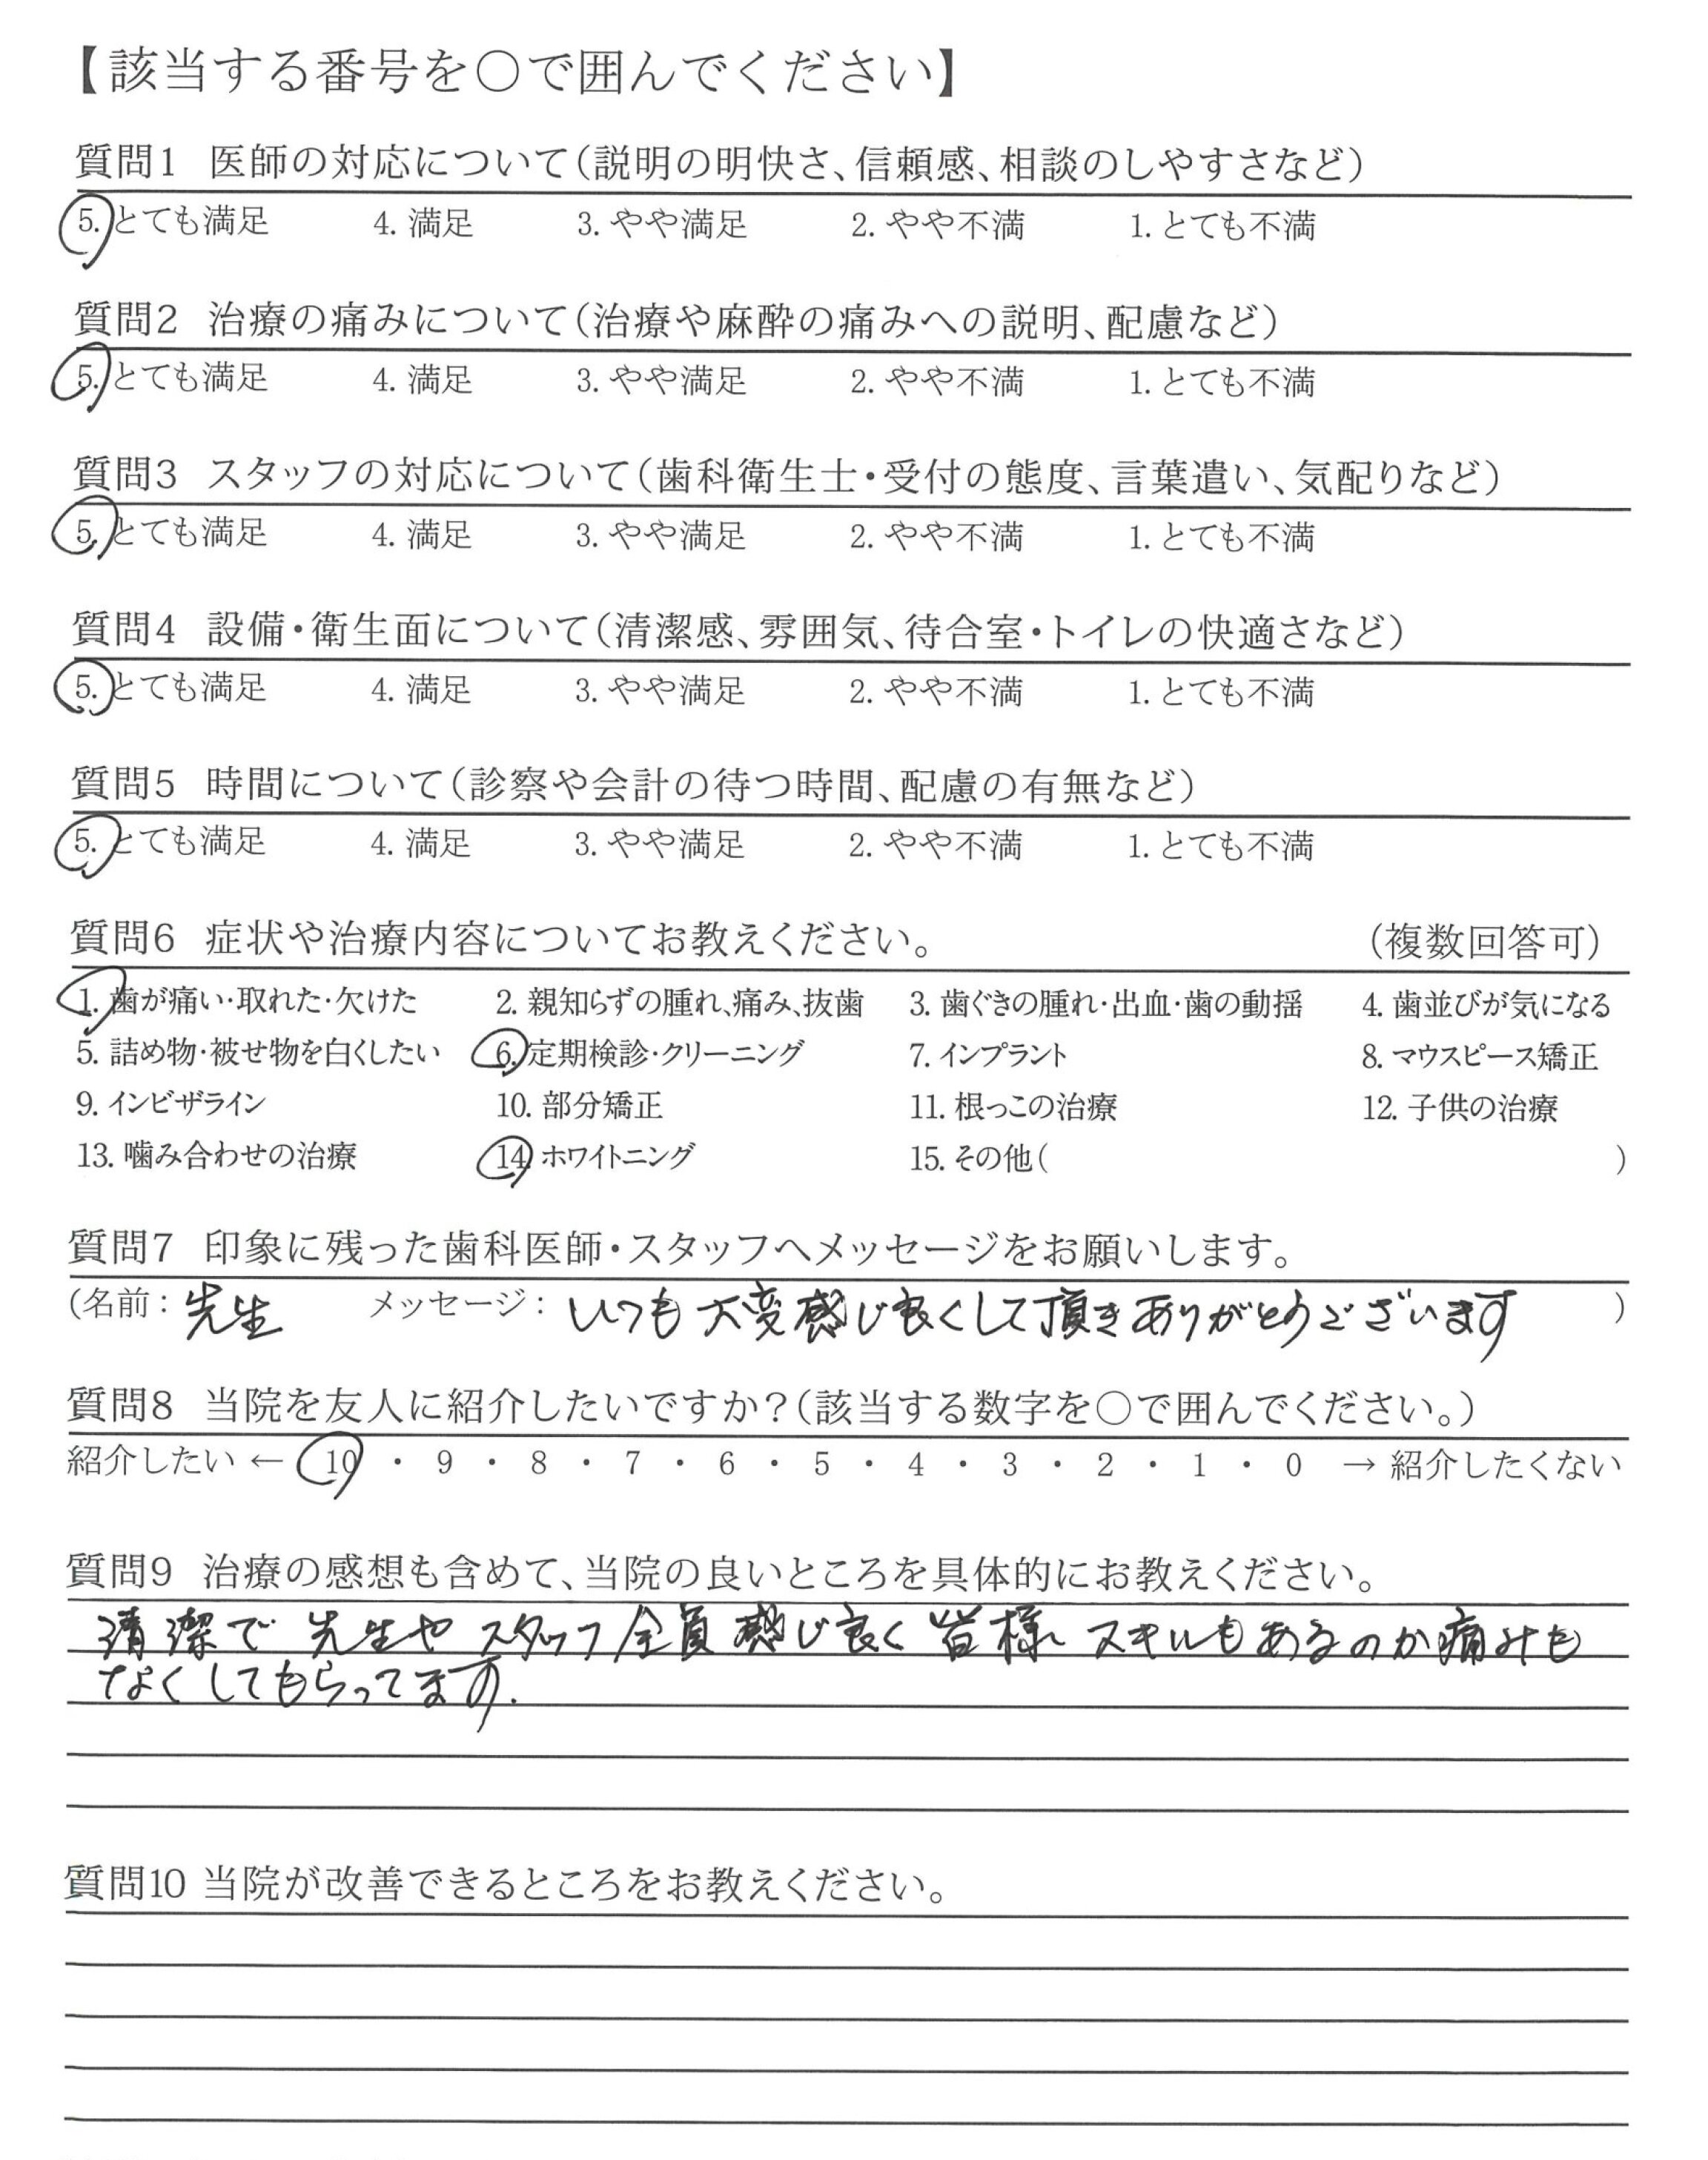 【該当する番号を○で囲んでください】
質問1 医師の対応について(説明の明快さ、信頼感、相談のしやすさなど)
5. とても満足 4. 満足 3. やや満足 2. やや不満 1. とても不満
質問2 治療の痛みについて(治療や麻酔の痛みへの説明、配慮など)
5. とても満足 4. 満足 3. やや満足 2. やや不満 1. とても不満
質問3 スタッフの対応について(歯科衛生士・受付の態度、言葉遣い、気配りなど)
5. とても満足 4. 満足 3. やや満足 2. やや不満 1. とても不満
質問4 設備・衛生面について(清潔感、雰囲気、待合室・トイレの快適さなど)
5. とても満足 4. 満足 3. やや満足 2. やや不満 1. とても不満
質問5 時間について(診察や会計の待つ時間、配慮の有無など)
5. とても満足 4. 満足 3. やや満足 2. やや不満 1. とても不満
質問6 症状や治療内容についてお教えください。 (複数回答可)
1. 歯が痛い・取れた・欠けた 2. 親知らずの腫れ、痛み、抜歯 3. 歯ぐきの腫れ・出血・歯の動揺 4. 歯並びが気になる
5. 詰め物・被せ物を白くしたい 6. 定期検診・クリーニング 7. インプラント 8. マウスピース矯正
9. インビザライン 10. 部分矯正 11. 根っこの治療 12. 子供の治療
13. 噛み合わせの治療 14. ホワイトニング 15. その他( )
質問7 印象に残った歯科医師・スタッフへメッセージをお願いします。
(名前: 先生 メッセージ: いつも大変感じ良くして頂きありがとうございます )
質問8 当院を友人に紹介したいですか?(該当する数字を○で囲んでください。)
紹介したい ← 10 ・ 9 ・ 8 ・ 7 ・ 6 ・ 5 ・ 4 ・ 3 ・ 2 ・ 1 ・ 0 → 紹介したくない
質問9 治療の感想も含めて、当院の良いところを具体的にお教えください。
清潔で 先生や スタッフ全員 感じ良く 皆様 スキルもあるのか痛みも
なくしてもらってます.
質問10 当院が改善できるところをお教えください。